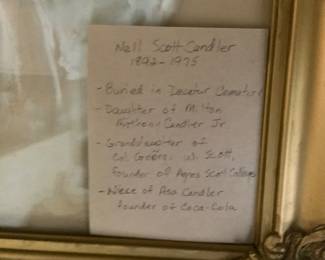 Nell Scott Candler
1892-1975
- Buried in Decatur Cemetery
- Daughter of Milton
Anthony Candler Jr
- Granddaughter of
Col. George W. Scott,
founder of Agnes Scott College
- Niece of Asa Candler
founder of Coca-Cola